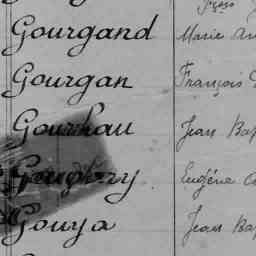 Gourgand Marie
Gourgan François
Gournau Jean Bap
Gougary Eugène
Gouya Jean Bap